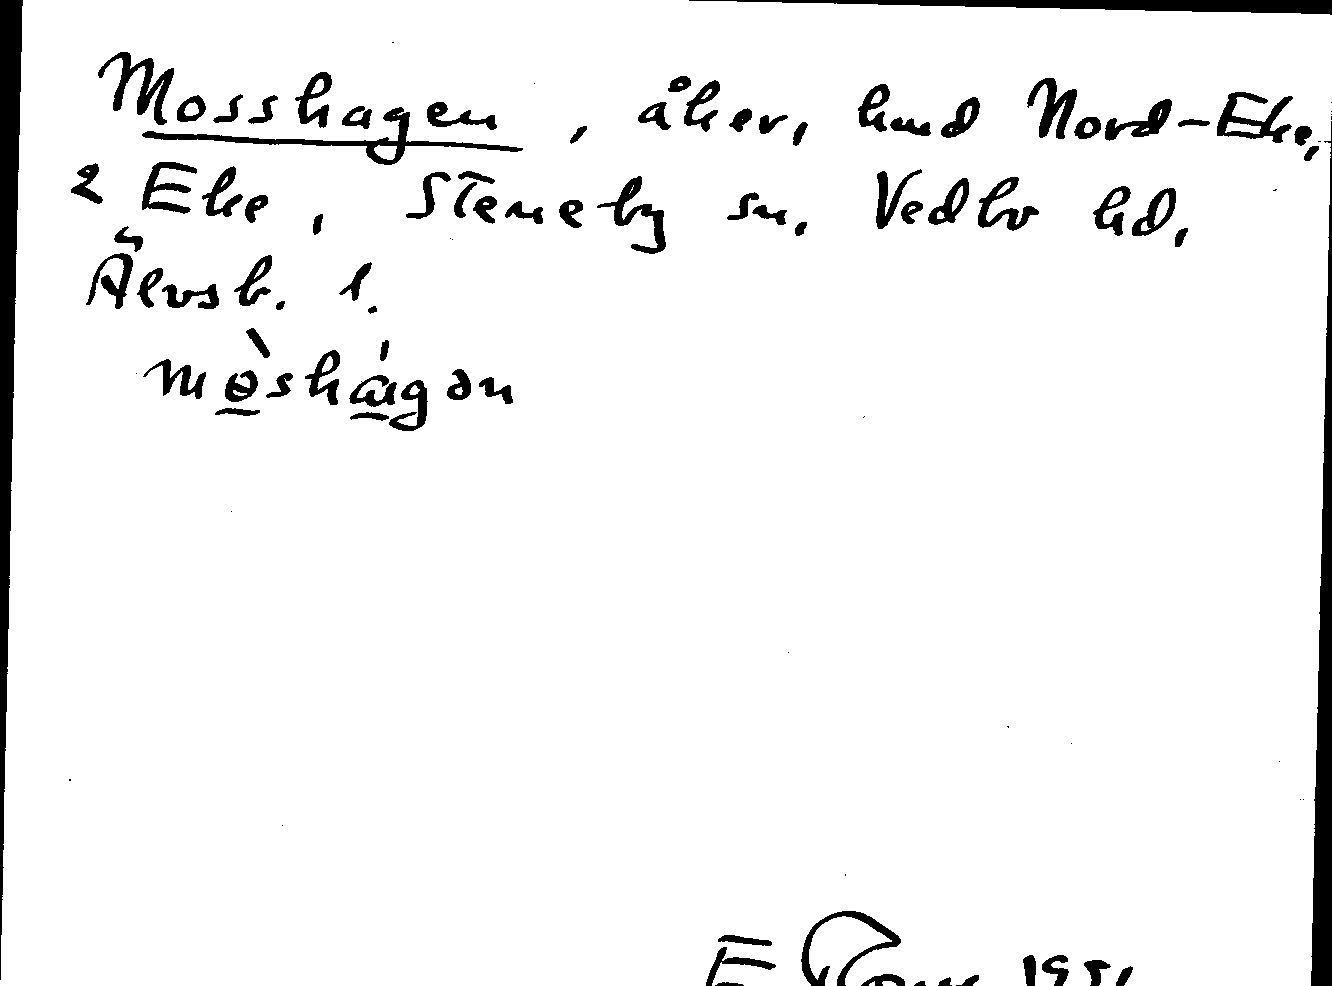 Mosshagen, åker, hmd Nord-Eke,
2 Eke, Steneby sn. Vedbo hd,
Älvsb. l.
mɵ̀shágən
E 1951